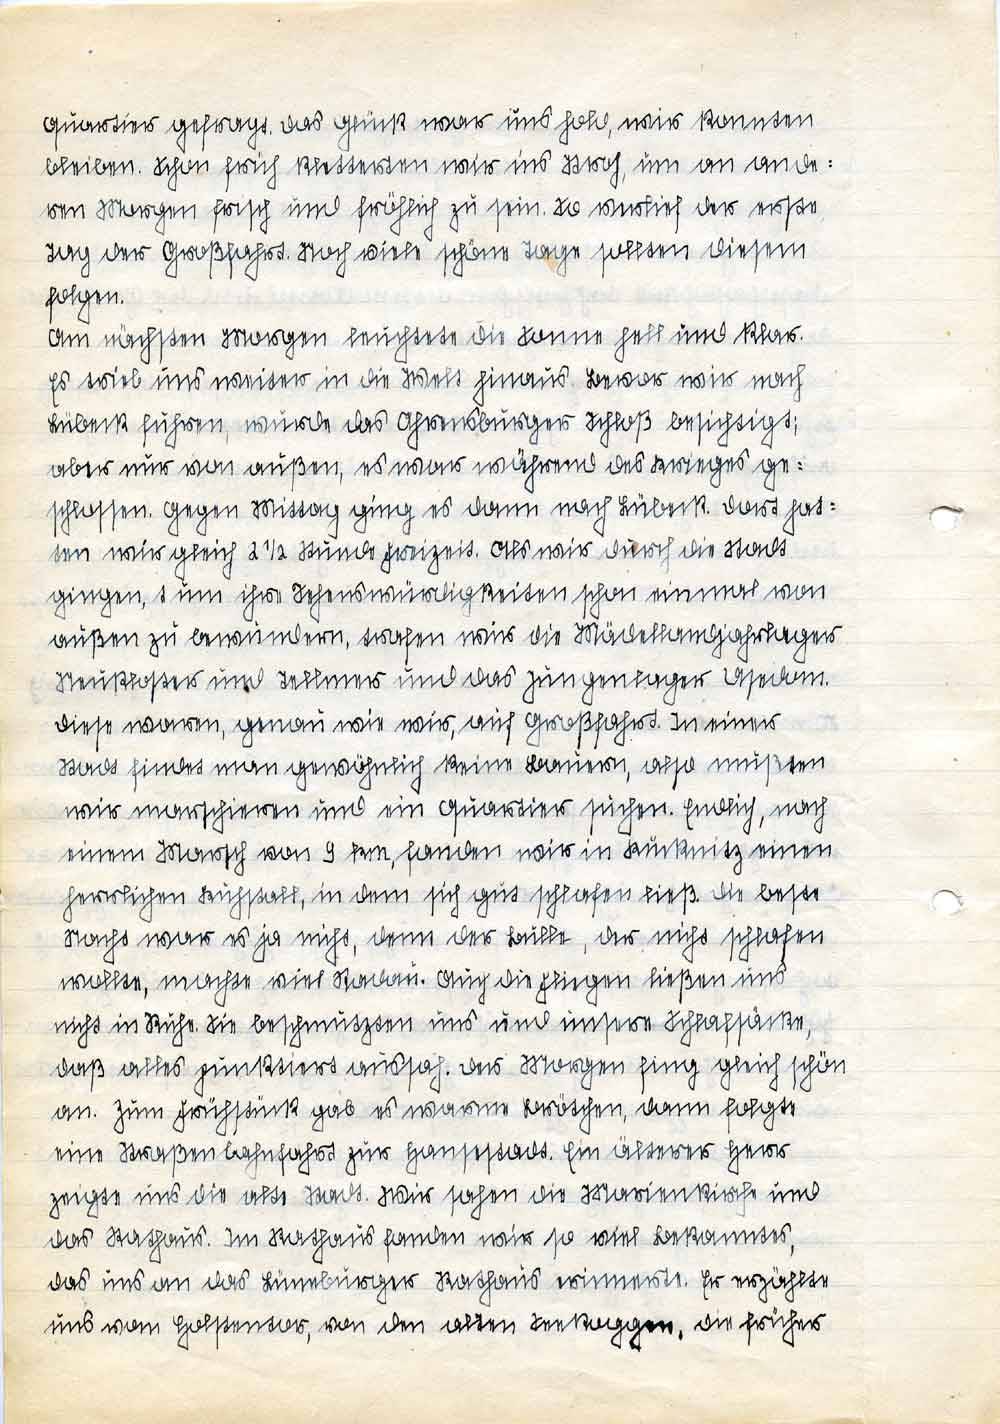 Quartier gefragt. Das Glück war uns hold, wir konnten
bleiben. Schon früh kletterten wir ins Stroh, um an ande=
ren Morgen frisch und fröhlich zu sein. So verlief der erste
Tag der Großfahrt. Noch viele schöne Tage sollten diesem
folgen.
Am nächsten Morgen leuchtete die Sonne hell und klar.
Es trieb uns weiter in die Welt hinaus. Bevor wir nach
Lübeck fuhren, wurde das Ahrensburger Schloß besichtigt;
aber nur von außen, es war während des Krieges ge=
schlossen. Gegen Mittag ging es dann nach Lübeck. Dort hat=
ten wir gleich 2 1/2 Stunde Freizeit. Als wir durch die Stadt
gingen, um ihre Sehenswürdigkeiten schon einmal von
außen zu bewundern, trafen wir die Mädellandjahrlager
Neukloster und Tellmer und das Jungenlager Usedom.
Diese waren, genau wie wir, auf Großfahrt. In einer
Stadt findet man gewöhnlich keine Bauern, also mußten
wir marschieren und ein Quartier suchen. Endlich, nach
einem Marsch von 9 km, fanden wir in Kücknitz einen
herrlichen Kuhstall, in dem sich gut schlafen ließ. Die beste
Nacht war es ja nicht, denn der Bulle, der nicht schlafen
wollte, machte viel Radau. Auch die Fliegen ließen uns
nicht in Ruhe. Sie beschmutzten uns und unsere Schlafsäcke,
daß alles punktiert aussah. Der Morgen fing gleich schön
an. Zum Frühstück gab es warme Brötchen, dann folgte
eine Straßenbahnfahrt zur Hansestadt. Ein älterer Herr
zeigte uns die alte Stadt. Wir sahen die Marienkirche und
das Rathaus. Im Rathaus fanden wir so viel Bekanntes,
das uns an das Lüneburger Rathaus erinnerte. Er erzählte
uns vom Holstentor, von den alten Seekoggen, die früher